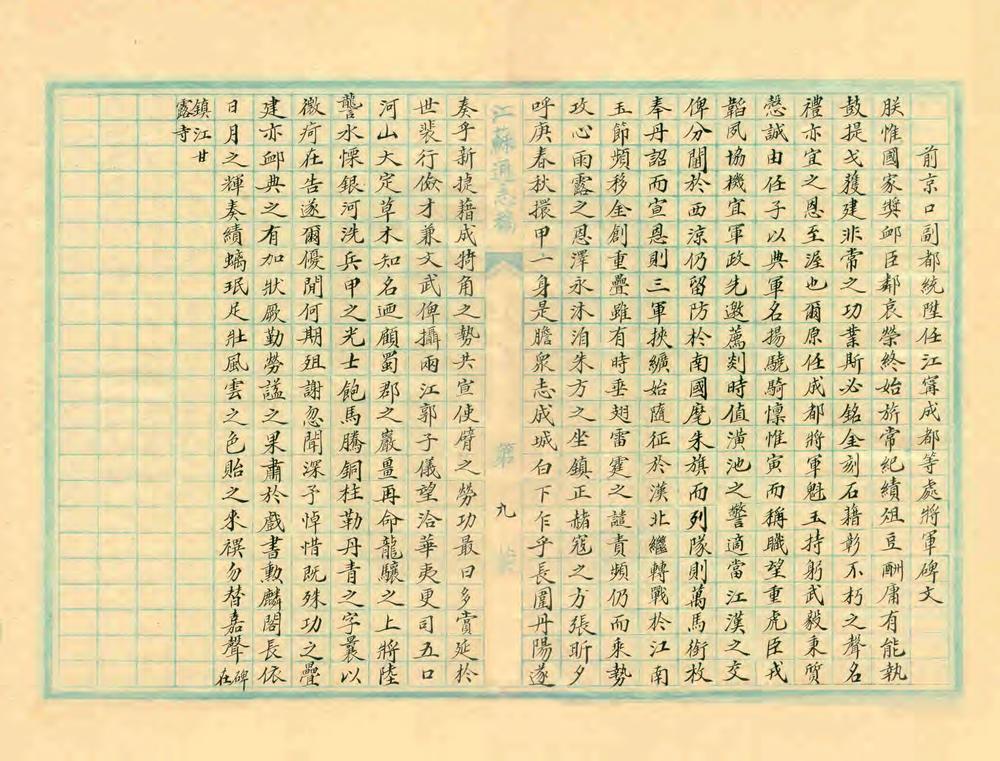 前京口副都統陞任江寗成都等處將軍碑文
朕惟國家獎卹臣鄰哀榮終始旂常紀績俎豆酬庸有能執
鼓提戈䕶建非常之功業斯必銘金刻石藉彰不朽之聲名
禮亦宜之恩至渥也爾原任成都將軍魁玉持躬武毅秉質
慤誠由任子以典軍名揚驍騎懔惟寅而稱職望重虎臣戎
韜夙協機宜軍政先邀薦剡時值潢池之警適當江漢之交
俾分閫於西涼仍留防於南國麾朱旗而列隊則萬馬銜枚
奉丹詔而宣恩則三軍挾纊始隨征於漢北繼轉戰於江南
玉節頻移金創重疊雖有時垂翅雷霆之譴責頻仍而乘勢
攻心雨露之恩澤永沐洎朱方之坐鎮正赭寇之方張昕夕
呼庚春秋擐甲一身是膽衆志成城白下乍乎長圍丹陽遂
江蘇通志稿
第九
奏乎新捷藉成犄角之勢共宣使臂之勞功最日多賞延於
世裴行儉才兼文武俾攝兩江郭子儀望洽華夷更司五口
河山大定草木知名迺顧蜀郡之巖畺再命龍驤之上將陸
讋水慄銀河洗兵甲之光士飽馬騰銅柱勒丹青之字曩以
微疴在告遂爾優閒何期殂謝忽聞深予悼惜既殊功之疊
建亦卹典之有加狀厥勤勞諡之果肅於戲書勲麟閣長依
日月之輝奏績螭珉足壯風雲之色貽之來禩勿替嘉聲碑在
鎮江甘露寺